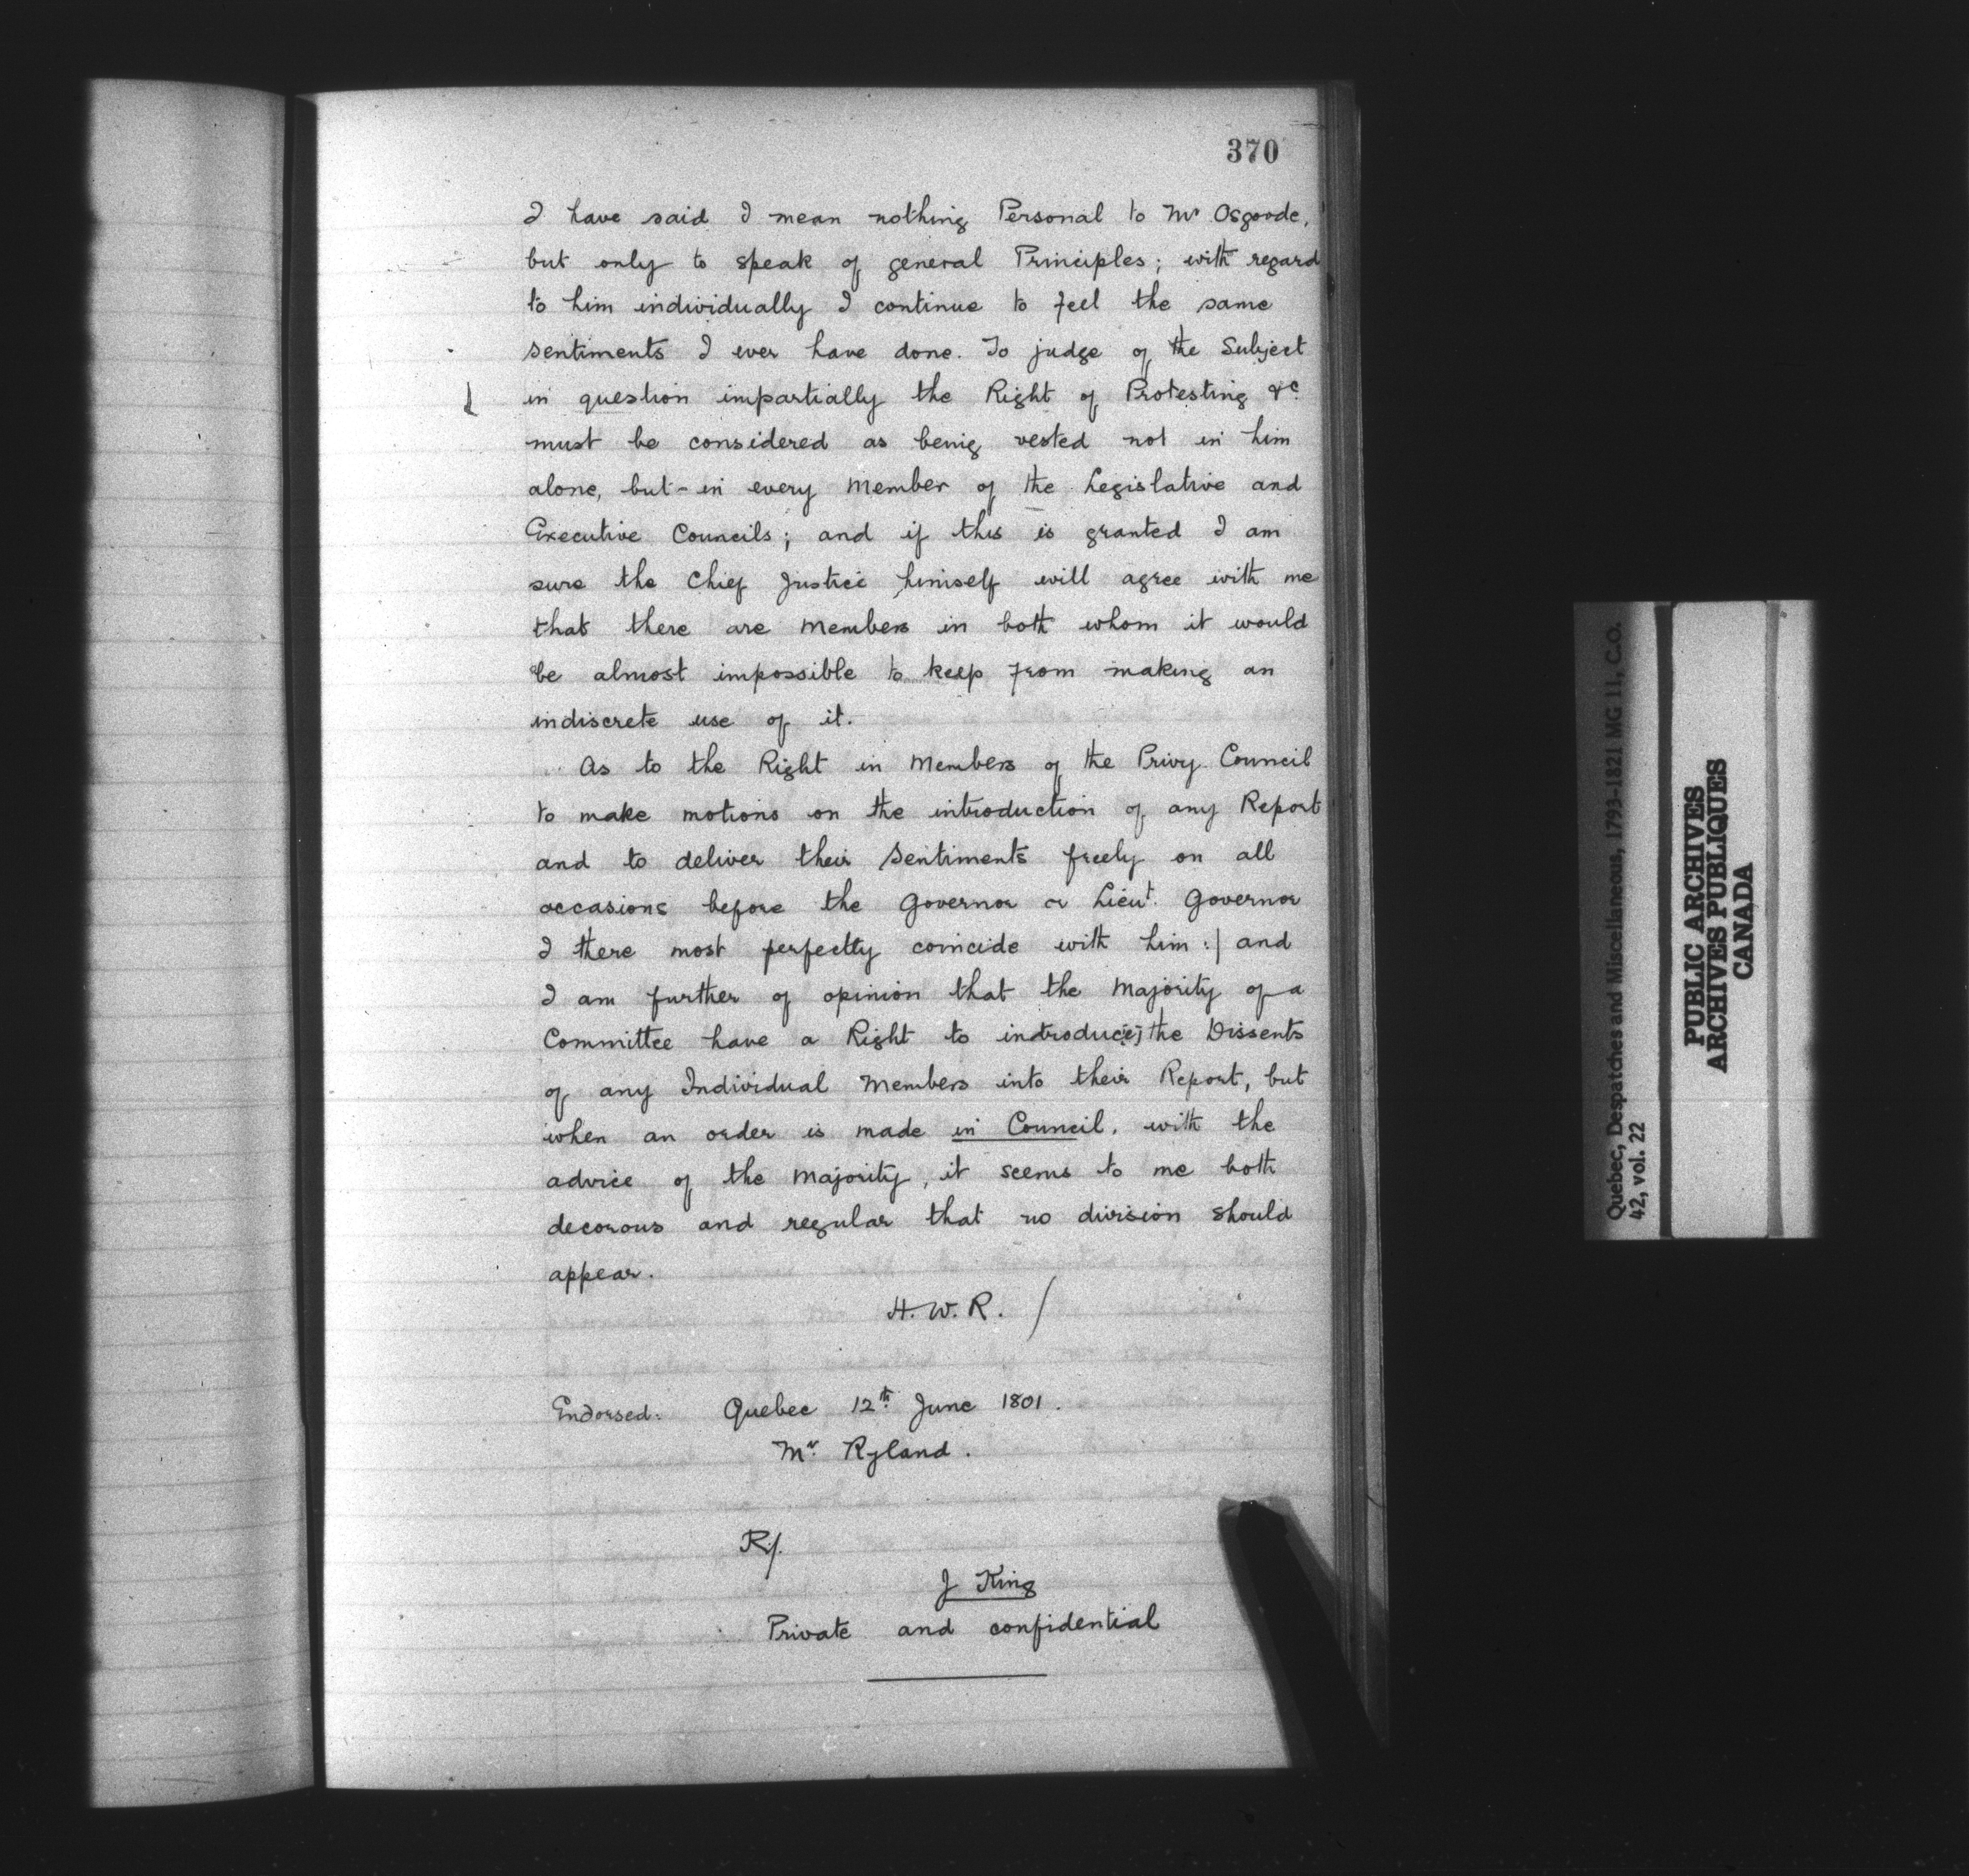 370
I have said I mean nothing Personal to Mr Osgoode,
but only to speak of general Principles; with regard
to him individually I continue to feel the same
sentiments I ever have done. To judge of the Subject
in question impartially the Right of Protesting &c
must be considered as being vested not in him
alone, but - in every Member of the Legislative and
Executive Councils; and if this is granted I am
sure the Chief Justice himself will agree with me
that there are Members in both whom it would
be almost impossible to keep from making an
indiscrete use of it.
As to the Right in Members of the Privy Council
to make motions on the introduction of any Report
and to deliver their Sentiments freely on all
occasions before the Governor or Lieut. Governor
I there most perfectly coincide with him :| and
I am further of opinion that the Majority of a
Committee have a Right to introduc[e] the Dissents
of any Individual Members into their Report, but
when an order is made in Council, with the
advice of the Majority, it seems to me both
decorous and regular that no division should
appear.
H. W. R. /
Endorsed: Quebec 12th June 1801.
Mr. Ryland.
R/.
J King
Private and confidential
Quebec, Despatches and Miscellaneous, 1793-1821 MG 11, C.O.
42, vol. 22
PUBLIC ARCHIVES
ARCHIVES PUBLIQUES
CANADA